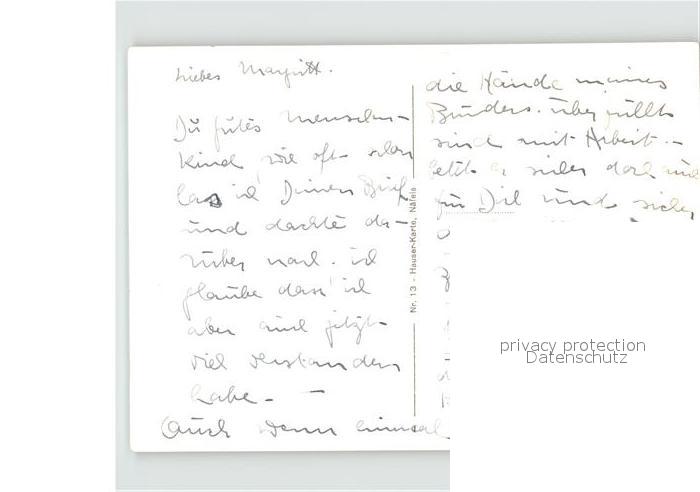 Liebes Margritt.
Du gutes Menschen-
kind wie oft schon
las ich Deinen Brief
und dachte da-
rüber nach. ich
glaube dass ich
aber auch jetzt
viel verstanden
habe. -
Auch wenn einmal
die Hände meines
Bruders überfüllt
sind mit Arbeit. -
er sicher doch auch
für Dich und sicher
Nr. 13 - Hauser-Karte, Näfels
privacy protection
Datenschutz